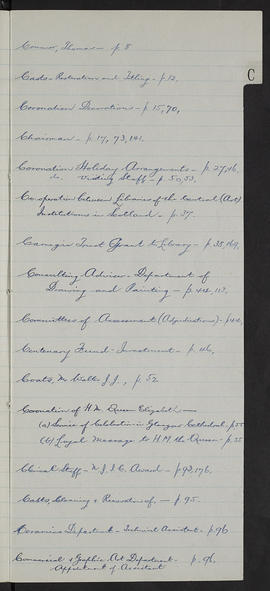 C
Connor, Thomas - p. 8
Casts - Restoration and Titling - p. 12.
Coronation Decorations - p. 15, 70,
Chairman - p. 17, 73, 141.
Coronation Holiday Arrangements - p. 27, 46.
do. Staff - p. 50, 53.
Co-operation between Libraries of the Central (Art)
Institutions in Scotland - p. 37.
Carnegie Trust Grant to Library - p. 38, 169.
Consulting Adviser - Department of
Drawing and Painting - p. 44, 113.
Committees of Assessment (Adjudications) - p. 44.
Centenary Fund - Investment - p. 46,
Coats, Mr J.J., p. 52
Coronation of H.M. Queen Elizabeth -
(a) Service of Celebration in Glasgow Cathedral p. 55
(b) Loyal Message to H.M. the Queen - p. 55
Clerical Staff - N.J.I.C. Award - p. 93, 176.
Casts, Cleaning & Renewal of. - p. 95.
Ceramics Department - Technical Assistant - p. 96
Commercial & Graphic Art Department - p. 98.
Appointment of Assistant